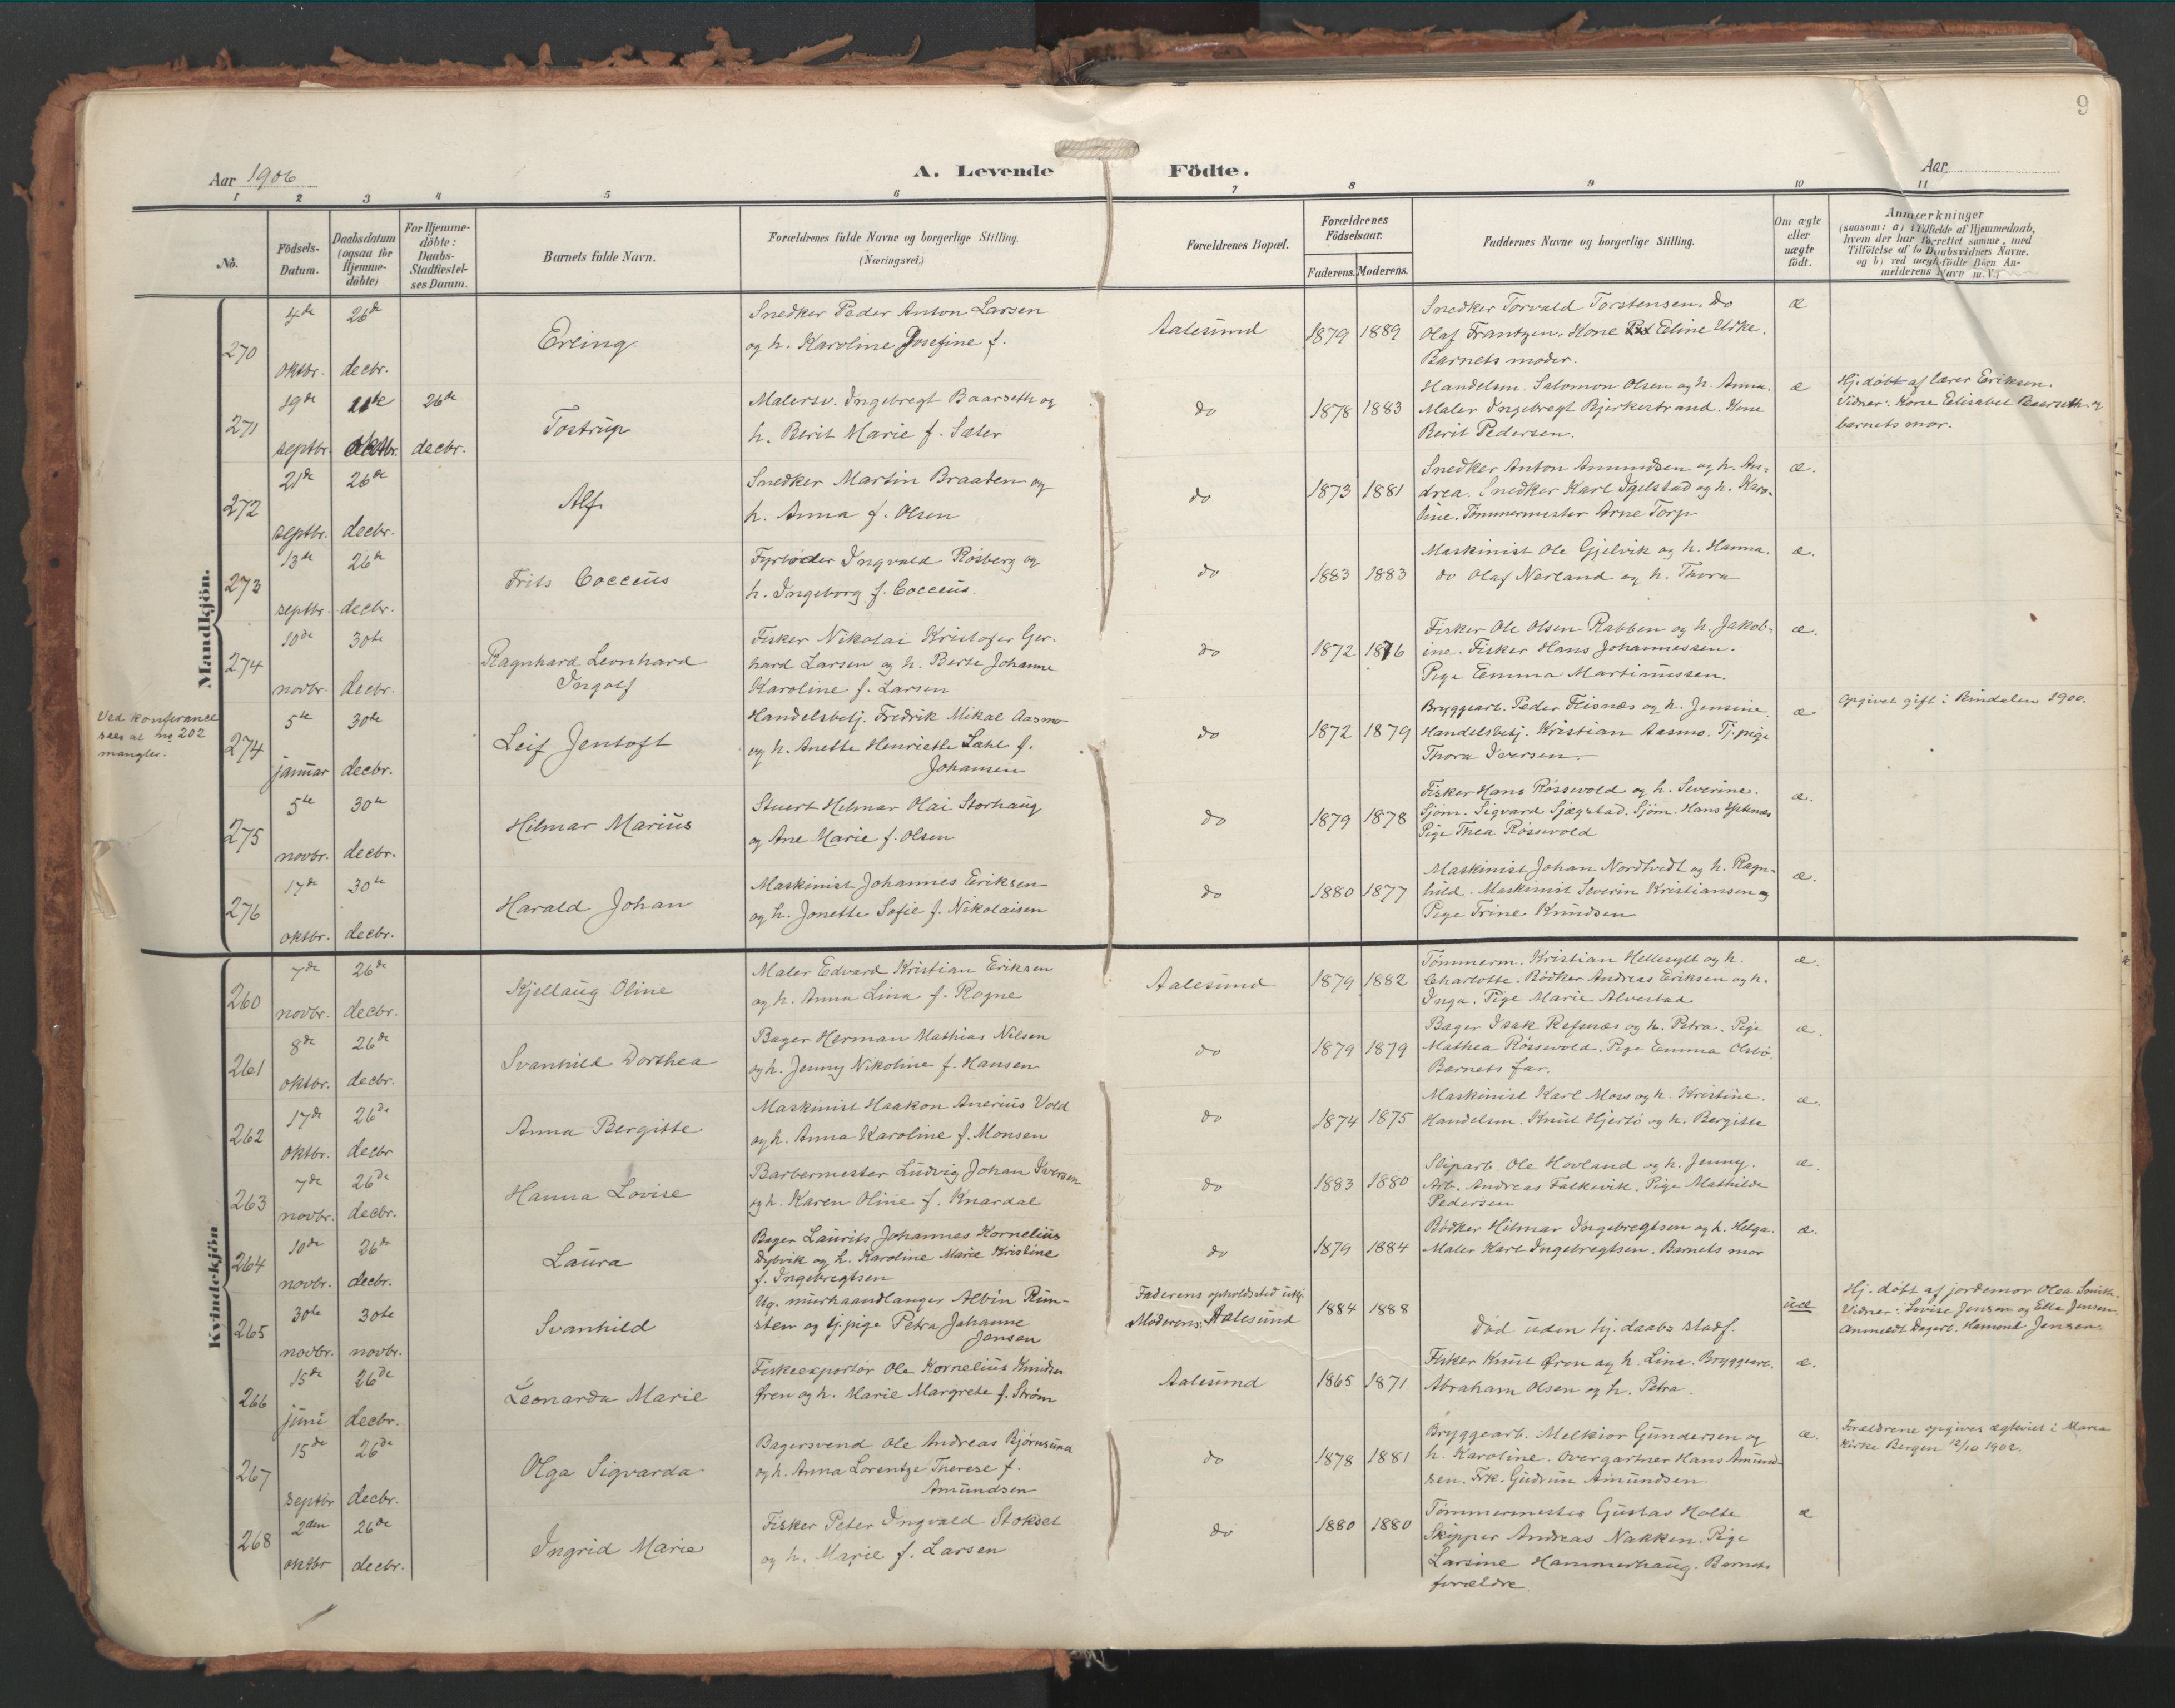 9
Aar 1906
A. Levende Födte.
Aar
1 2 3 4 5 6 7 8 9 10 11
No.
Födsels-Datum.
Daabsdatum (ogsaa for Hjemme-döbte)
For Hjemme-döbte: Daabs-Stadfæstel-ses Datum.
Barnets fulde Navn.
Forældrenes fulde Navne og borgerlige Stilling. (Næringsvei.)
Forældrenes Bopæl.
Forældrenes Födselsaar.
Faderens. Moderens.
Faddernes Navne og borgerlige Stilling.
Om ægte eller uægte födt.
Anmærkninger
(saasom: a) i Tilfælde af Hjemmedaab,
hvem der har forrettet samme, med
Tilföielse af to Daabsvidners Navne.
og b) ved uægte födte Börn An-
melderens Navn m. V.)
Mandkjön.
270
4de oktbr.
26de decbr.
Erling
Snedker Peder Anton Larsen
og h. Karoline Josefine f.
Aalesund
1879 1889
Snedker Torvald Torstensen. do
Olaf Frantzen. Kone Eline Urke.
Barnets moder.
æ
271
19de septbr.
26de decbr.
Tostrup
Malersv. Ingebregt Baarseth og
h. Berit Marie f. Sæter
do
1878 1883
Handelsm. Salomon Olsen og h. Anna.
Maler Ingebregt Bjerkestrand. Kone
Berit Pedersen.
æ
Hj. döbt af lærer Eriksen.
Vidner: Kone Elisabet Baarseth og
barnets mor.
272
21de septbr.
26de decbr.
Alf
Snedker Martin Braaten og
h. Anna f. Olsen
do
1873 1881
Snedker Anton Amundsen og h. An-
drea. Snedker Karl Igelstad og h. Karo-
line. Tömmermester Arne Torp
æ.
273
13de septbr.
26de decbr.
Frits Cocceus
Fyrböder Ingvald Rösberg og
h. Ingeborg f. Cocceus.
do
1883 1883
Maskinist Ole Gjelvik og h. Hanna.
do Olaf Nerland og h. Thora
æ.
274
10de novbr.
30te decbr.
Ragnhard Leonhard
Ingolf
Fisker Nikolai Kristofer Ger-
hard Larsen og h. Berte Johanne
Karoline f. Larsen
do
1872 1876
Fisker Ole Olsen Rabben og h. Jakob-
ine. Fisker Hans Johannessen.
Pige Emma Martinussen.
æ.
Ved konferance
sees at no 202
mangler.
274
5te januar
30te decbr.
Leif Jentoft
Handelsbetj. Fredrik Mikal Aasmo
og h. Anette Henriette Lahl f.
Johansen
do
1872 1879
Bryggearb. Peder Fliisnæs og h. Jensine.
Handelsbetj. Kristian Aasmo. Tj. pige
Thora Iversen.
æ
Opgivet gift i Rindalen 1900.
275
5te novbr.
30te decbr.
Hilmar Marius
Stuert Helmar Olai Storhaug
og Ane Marie f. Olsen
do
1879 1878
Fisker Hans Rössevold og h. Severine.
Sjöm. Sigvard Sjægstad. Sjöm. Hans
Pige Thea Rössevold
æ.
276
17de oktbr.
30te decbr.
Harald Johan
Maskinist Johannes Eriksen
og h. Jonette Sofie f. Nikolaisen
do
1880 1877
Maskinist Johan Nordtvedt og h. Ragn-
hild. Maskinist Severin Kristiansen og
Pige Trine Knudsen
æ.
Kvindekjön
260
7de novbr.
26de decbr.
Kjellaug Oline
Maler Edvard Kristian Eriksen
og h. Anna Lina f. Rogne
Aalesund
1879 1882
Tömmerm. Kristian Hellesylt og h.
Charlotte. Bödker Andreas Eriksen og h.
Inga. Pige Marie Alvestad
æ.
261
8de oktbr.
26de decbr.
Svanhild Dorthea
Bager Herman Mathias Nilsen
og h. Jenny Nikoline f. Hansen
do
1879 1879
Bager Isak Refsnæs og h. Petra. Pige
Mathea Rössevold. Pige Emma Olsbö.
Barnets far.
æ.
262
17de oktbr.
26de decbr
Anna Bergitte
Maskinist Haakon Anerius Vold
og h. Anna Karoline f. Monsen
do
1874 1875
Maskinist Karl Moss og h. Kristine.
Handelsm. Knut Hjertö og h. Bergitte
æ.
263
7de novbr.
26de decbr.
Hanna Lovise
Barbermester Ludvig Johan Iversen
og h. Karen Oline f. Knardal
do
1883 1880
Sliparb. Ole Hovland og h. Jenny.
Arb. Andreas Falkevik. Pige Mathilde
Pedersen
æ.
264
10de novbr.
26de decbr.
Laura
Bager Laurits Johannes Kornelius
Dybvik og h. Karoline Marie Kristine
f. Ingebregtsen
do
1879 1884
Bödker Hilmar Ingebregtsen og h. Helga.
Maler Karl Ingebregtsen. Barnets mor
æ.
265
30te novbr.
30te novbr.
Svanhild
Ug. murhaandlanger Albin Run-
sten og tj. pige Petra Johanne
Jensen
Faderens opholdssted ukj.
Moderens: Aalesund
1884 1888
Död uden hj. daabs stadf.
uæ
Hj. döbt af jordemor Olea Smith.
Vidner: Lovise Jensen og Elle Jensen.
Anmeldt Dagarb. Hamond Jensen.
266
15de juni
26de decbr.
Leonarda Marie
Fiskeexportör Ole Kornelius Knudsen
Ören og h. Marie Margrete f. Ström
Aalesund
1865 1871
Fisker Knut Ören og h. Line. Bryggearb.
Abraham Olsen og h. Petra.
æ.
267
15de septbr
26de decbr.
Olga Sigvarda
Bagersvend Ole Andreas Björnsund
og h. Anna Lorentze Therese f.
Amundsen
do
1878 1881
Bryggearb. Melkior Gundersen og
h. Karoline. Overgartner Hans Amund-
sen. Frk. Gudrun Amundsen
æ.
Forældrene opgives ægteviet i Maria
Kirke Bergen 12/10 1902.
268
2den oktbr
26de decbr.
Ingrid Marie
Fisker Peter Ingvald Stokset
og h. Marie f. Larsen
do
1880 1880
Tömmermester Gustav Holte
Skipper Andreas Nakken. Pige
Larsine Hammerhaug. Barnets
forældre.
æ